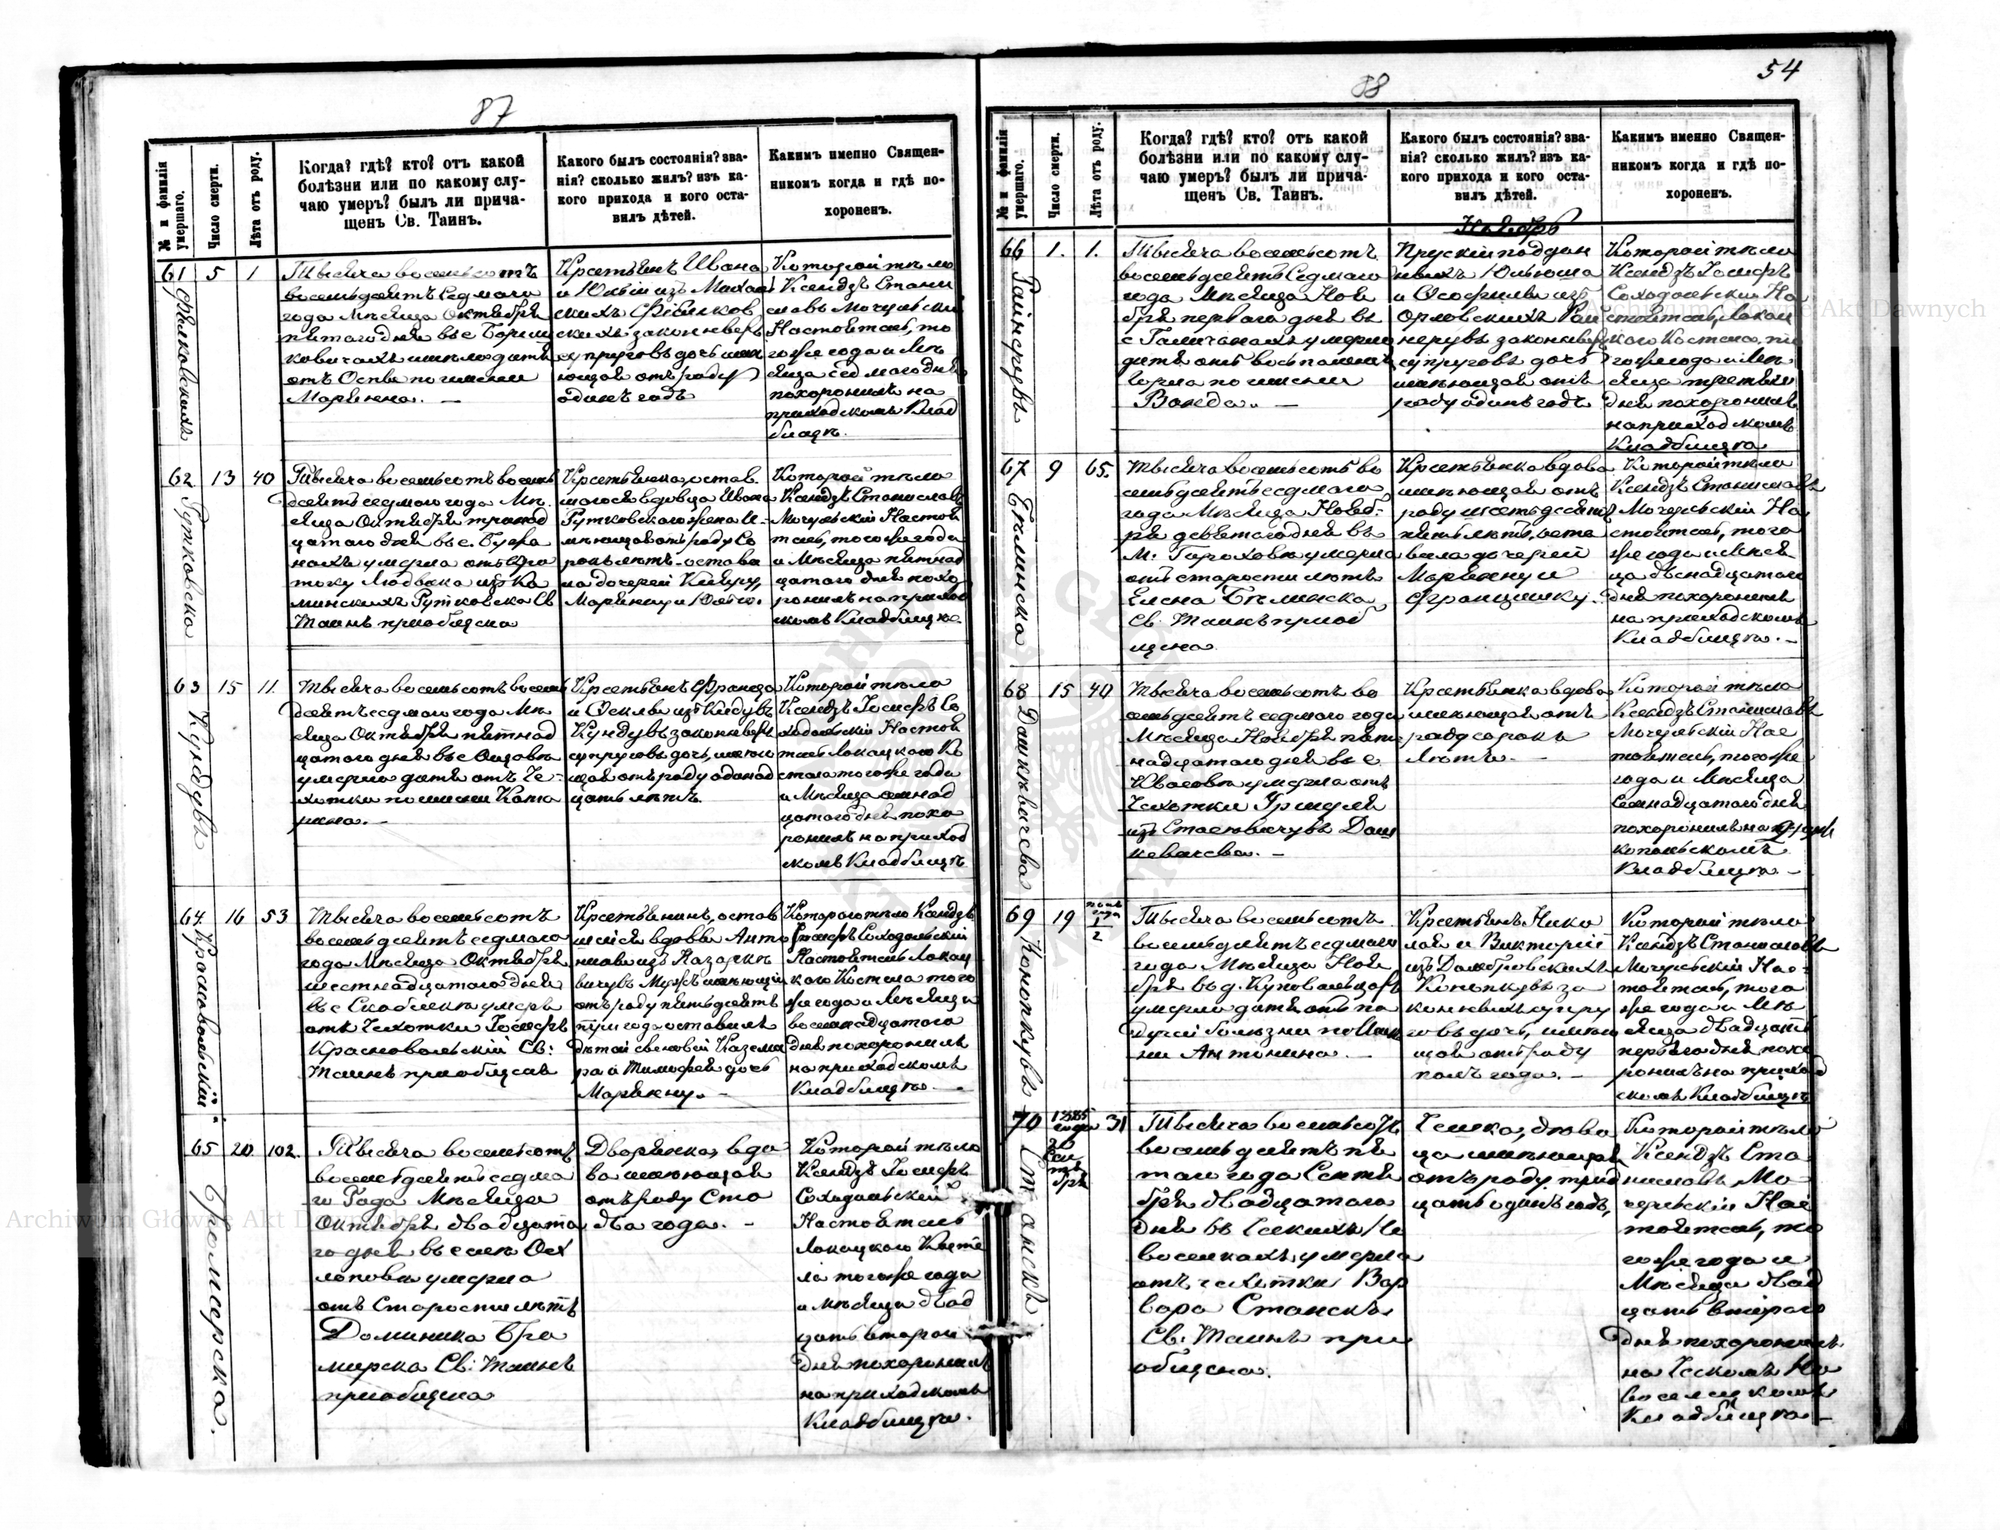 87
№ и фамилія умершаго.
Число смерти.
Лѣта отъ роду.
Когда? гдѣ? кто? отъ какой
болѣзни или по какому слу-
чаю умеръ? былъ ли прича-
щенъ Св. Таинъ.
Какого былъ состоянія? зва-
нія? сколько жилъ? изъ ка-
кого прихода и кого оста-
вилъ дѣтей.
Какимъ именно Священ-
никомъ когда и гдѣ по-
хороненъ.
61
5
1
Тысяча восемьсотъ
восемьдесятъ седмаго
года Мѣсяца Октября
пятаго дня въ с.
умерло дитя
отъ Оспы по имени
Марьянна. —
Крестьянъ Ивана
супруговъ дочь имѣ
ющая отъ роду
одинъ годъ
Которой тѣло
Ксендзъ Стани
славъ Мочульскій
Настоятель, то
гоже года и Мѣ
сяца седмаго дня
похоронилъ на
приходскомъ Клад
бищѣ.
62
Гутковска
13
40
Тысяча восемьсотъ восемь
десятъ седмаго года Мѣ
сяца Октября тринад
цатаго дня въ с.
нахъ умерла отъ
Людвика изъ Ка
минскихъ Гутковска Св
Таинъ пріобщена
Крестьянка, остав
шагося вдовца Ивана
Гутковскаго жена и
мѣющая отъ роду со
рокъ лѣтъ остави
ла дочерей
Марьянну и
Которой тѣло
Ксендзъ Станиславъ
Мочульскій Настоя
тель, того же года
и Мѣсяца пятнад
цатаго дня похо
ронилъ на приход
скомъ Кладбищѣ.
63
Кундувъ
15
11
Тысяча восемьсотъ восемь
десятъ седмаго года Мѣ
сяца Октября пятнад
цатаго дня въ с.
умерло дитя отъ Ча
хотки по имени
Крестьянъ Франца
Кундувъ законныхъ
супруговъ дочь, имѣю
щая отъ роду одинад
цать лѣтъ.
Которой тѣло
Ксендзъ Іосифъ Со
ходольскій Настоя
тель Локацкого Ко
стела того же года
и Мѣсяца семнад
цатаго дня похо
ронилъ на приход
скомъ Кладбищѣ
64
Красновольскій
16
53
Тысяча восемьсотъ
восемьдесятъ седмаго
года Мѣсяца Октября
шестнадцатаго дня
въ с. умеръ
отъ Чахотки Іосифъ
Красновольскій Св:
Таинъ пріобщенъ
Крестьянинъ, остав
шейся вдовы Анто
нины изъ Назарке
вичувъ Мужъ имѣющій
отъ роду пятьдесятъ
три года оставилъ
дѣтей сыновей Казими
ра и Тимофея дочь
Марьянну. —
Котораго тѣло Ксендзъ
Іосифъ Соходольскій
Настоятель Локац
кого Костела того
же года и Мѣсяца
восемнадцатаго
дня похоронилъ
на приходскомъ
Кладбищѣ —
65
20
102.
Тысяча восемьсотъ
восемьдесятъ седма
го Года Мѣсяца
Октября двадцата
го дня въ селѣ Ох
лоповѣ умерла
отъ Старости лѣтъ
Доминика
Св: Таинъ
пріобщена
Дворянка, вдо
ва имѣющая
отъ роду Сто
два года. —
Которой тѣло
Ксендзъ Іосифъ
Соходольскій
Настоятель
Локацкого Косте
ла того же года
и Мѣсяца двад
цать второй
дня похоронилъ
на приходскомъ
Кладбищѣ.
54
88
№ и фамилія умершаго.
Число смерти.
Лѣта отъ роду.
Когда? гдѣ? кто? отъ какой
болѣзни или по какому слу-
чаю умеръ? былъ ли прича-
щенъ Св. Таинъ.
Какого былъ состоянія? зва-
нія? сколько жилъ? изъ ка-
кого прихода и кого оста-
вилъ дѣтей.
Какимъ именно Священ-
никомъ когда и гдѣ по-
хороненъ.
Ноябрь
66
1.
1.
Тысяча восемьсотъ
восемьдесятъ седмаго
года Мѣсяца Ноя
бря перваго дня въ
с Галичанахъ умерло
дитя отъ воспаленія
горла по имени
Ванда. —
Прускій поддан
ныхъ Юльюша
и Ософили изъ
Орловскихъ
супруговъ дочь
имѣющая отъ
роду одинъ годъ
Которой тѣло
Ксендзъ Іосифъ
Соходольскій На
стоятель Локац
кого Костела, то
гоже года и Мѣ
сяца третьяго
дня похоронилъ
на приходскомъ
Кладбищѣ
67
Бѣлинска
9
65.
Тысяча восемьсотъ во
семьдесятъ седмаго
года Мѣсяца Нояб-
ря девятаго дня въ
М. Гороховѣ умерла
отъ старости лѣтъ
Елена Бѣлинска
Св. Таинъ пріоб
щена
Крестьянка вдова
имѣющая отъ
роду шестьдесятъ
пять лѣтъ, оста
вила дочерей
Марьянну и
Францишку.
Которой тѣло
Ксендзъ Станиславъ
Мочульскій На
стоятель, того
же года и Мѣся
ца двѣнадцатаго
дня похоронилъ
на приходскомъ
Кладбищѣ. —
68
15
40
Тысяча восемьсотъ во
семьдесятъ седмаго года
Мѣсяца Ноября пят
надцатаго дня въ с
умерла отъ
Чахотки
Крестьянка вдова
имѣющая отъ
роду сорокъ
лѣтъ. —
Которой тѣло
Ксендзъ Станиславъ
Мочульскій Нас
тоятель, того же
года и Мѣсяца
Семнадцатаго дня
похоронилъ на
Кладбищѣ —
69
Конопкувъ
19
полъ
года
1/2
Тысяча восемьсотъ
восемьдесятъ седмаго
года Мѣсяца Ноя
бря въ д.
умерло дитя отъ па
дучей болѣзни по име
ни Антонина. —
Крестьянъ Нико
лая и Викторіи
изъ Домбровскихъ
Конопкувъ за
конныхъ супру
говъ дочь, имѣю
щая отъ роду
полъ года. —
Которой тѣло
Ксендзъ Станиславъ
Мочульскій Нас-
тоятель, того
же года и Мѣ
сяца двадцать
перваго дня похо
ронилъ на приход
скомъ Кладбищѣ
70
1885
года
20
Сен
тя
бря
31
Тысяча восемьсотъ
восемьдесятъ пя
таго года Сентя
бря двадцатаго
дня въ Ческихъ Но
воселкахъ умерла
отъ чахотки Вар
вара
Св: Таинъ прі
общена.
Чешка,
имѣющая
отъ роду трид
цать одинъ годъ,
Которой тѣло
Ксендзъ Ста
ниславъ Мо
чульскій Нас
тоятель, то
гоже года и
Мѣсяца двад
цать втораго
дня похоронилъ
на Ческомъ Но
воселецкомъ
Кладбищѣ —
Archiwum Główne Akt Dawnych